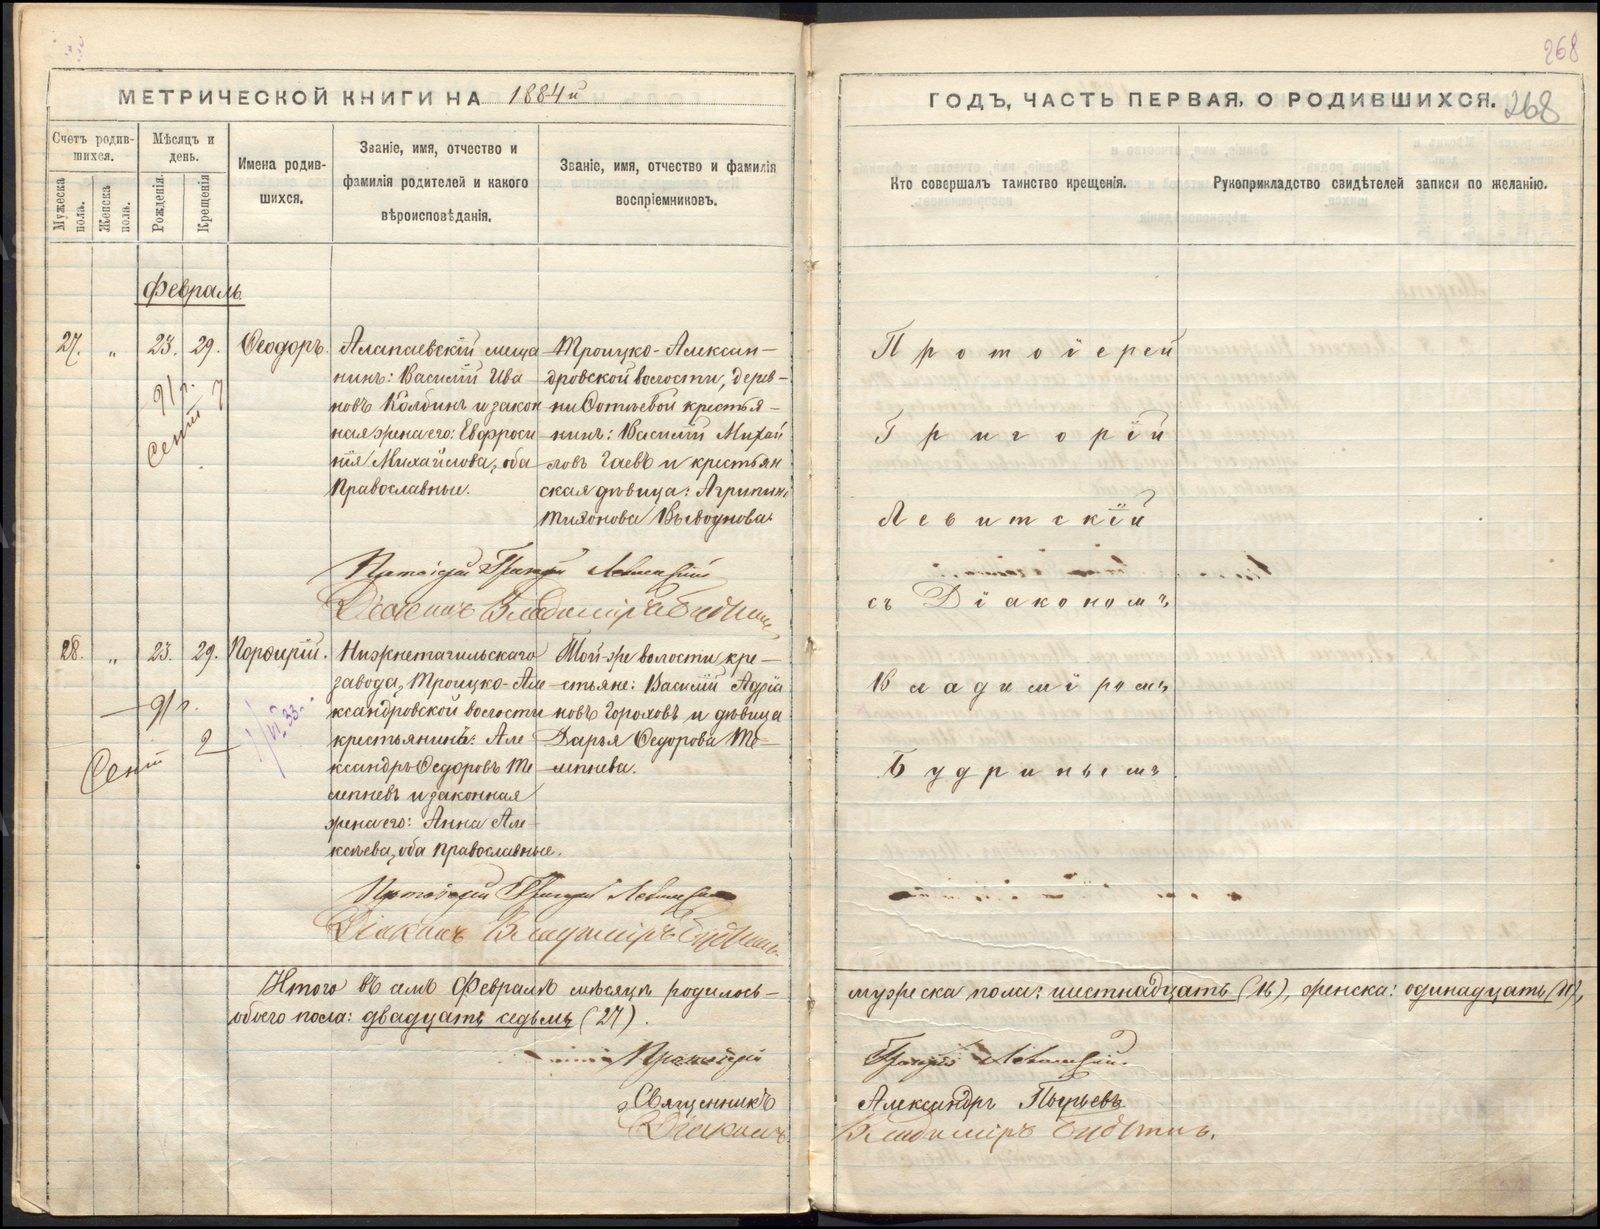 268
МЕТРИЧЕСКОЙ КНИГИ НА 1884й
ГОДЪ, ЧАСТЬ ПЕРВАЯ, О РОДИВШИХСЯ.
268
Счетъ родив-
шихся.
Мужеска
пола.
Женска
пола.
Мѣсяцъ и
день.
Рожденія.
Крещенія
Имена родив-
шихся.
Званіе, имя, отчество и
фамилія родителей и какого
вѣроисповѣданія.
Званіе, имя, отчество и фамилія
воспріемниковъ.
Кто совершалъ таинство крещенія.
Рукоприкладство свидѣтелей записи по желанію.
Февраль
27. " 23. 29. Ѳеодоръ.
91 г.
Сент 7
Алапаевскій меща
нинъ: Василій Ива
новъ Колбинъ и закон
ная жена его: Евфроси
нія Михайлова, оба
Православные.
Троицко-Алексан-
дровской волости, дерев-
ни Сотъевой крестья-
нинъ: Василій Михай
ловъ Гаевъ и крестьян
ская дѣвица: Агрипина
Тихонова
Протоіерей Григорій Левитскій
Діаконъ Владиміръ Будринъ
28. " 23. 29. Порфирій.
91 г.
Сент 2
Нижнетагильскаго
завода, Троицко-Але
ксандровской волости
крестьянинъ: Але
ксандръ Ѳедоровъ Те
лепневъ и законная
жена его: Анна Але
ксѣева, оба православные.
Той-же волости, кре-
стьяне: Василій Адріа
новъ Гороховъ и дѣвица
Дарья Ѳедорова Те-
лепнева.
Протоіерей Григорій Левитскій
Діаконъ Владиміръ Будринъ
Протоіерей
Григорій
Левитскій
съ Діакономъ
Владиміромъ
Будринымъ.
Итого въ Февралѣ мѣсяцѣ родилось-
обоего пола: двадцать седьмь (27).
мужеска пола: шестнадцать (16), женска: одинадцать (11),
Протоіерей
Григорій Левитскій.
Священникъ
Александръ
Діаконъ
Владиміръ Будринъ.